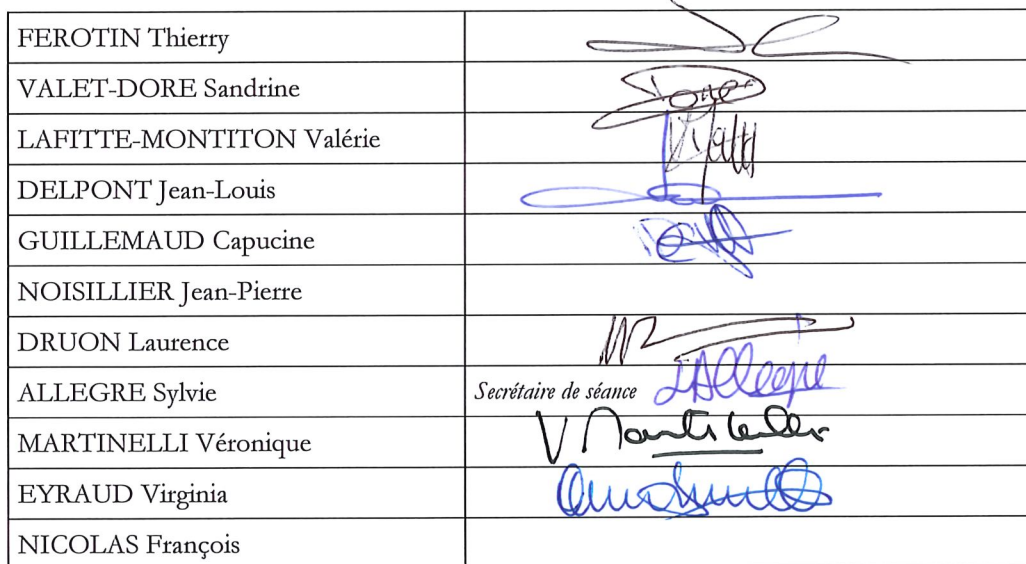 FEROTIN Thierry
VALET-DORE Sandrine
LAFITTE-MONTITON Valérie
DELPONT Jean-Louis
GUILLEMAUD Capucine
NOISILLIER Jean-Pierre
DRUON Laurence
ALLEGRE Sylvie Secrétaire de séance
MARTINELLI Véronique
EYRAUD Virginia
NICOLAS François